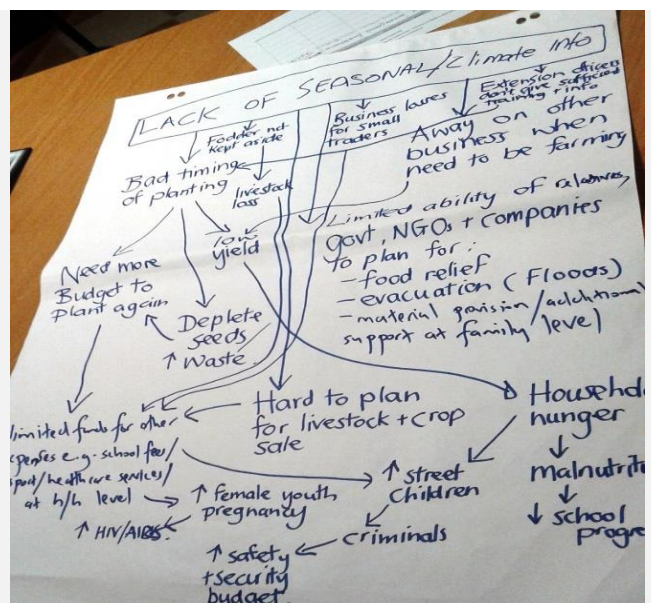 LACK OF SEASONAL/Climate Info
Fodder not
kept aside
Business losses
for small
traders
Extension officers
don't give sufficient
training + info
Bad timing
of planting
livestock
loss
Away on other
business when
need to be farming
low
yield
Limited ability of relatives,
govt, NGOs + companies
to plan for:
- food relief
- evacuation (Floods)
- material provision/additional
support at family level
Need more
Budget to
Plant again
Deplete
seeds
↑ Waste.
limited funds for other
expenses e.g. school fees/
/healthcare services/
at h/h level
Hard to plan
for livestock + crop
sale
Househo
hunger
malnutrit
↓ school
progre
↑ street
children
↑ female youth
pregnancy
↑ HIV/AIDS.
criminals
↑ safety
+ security
budget